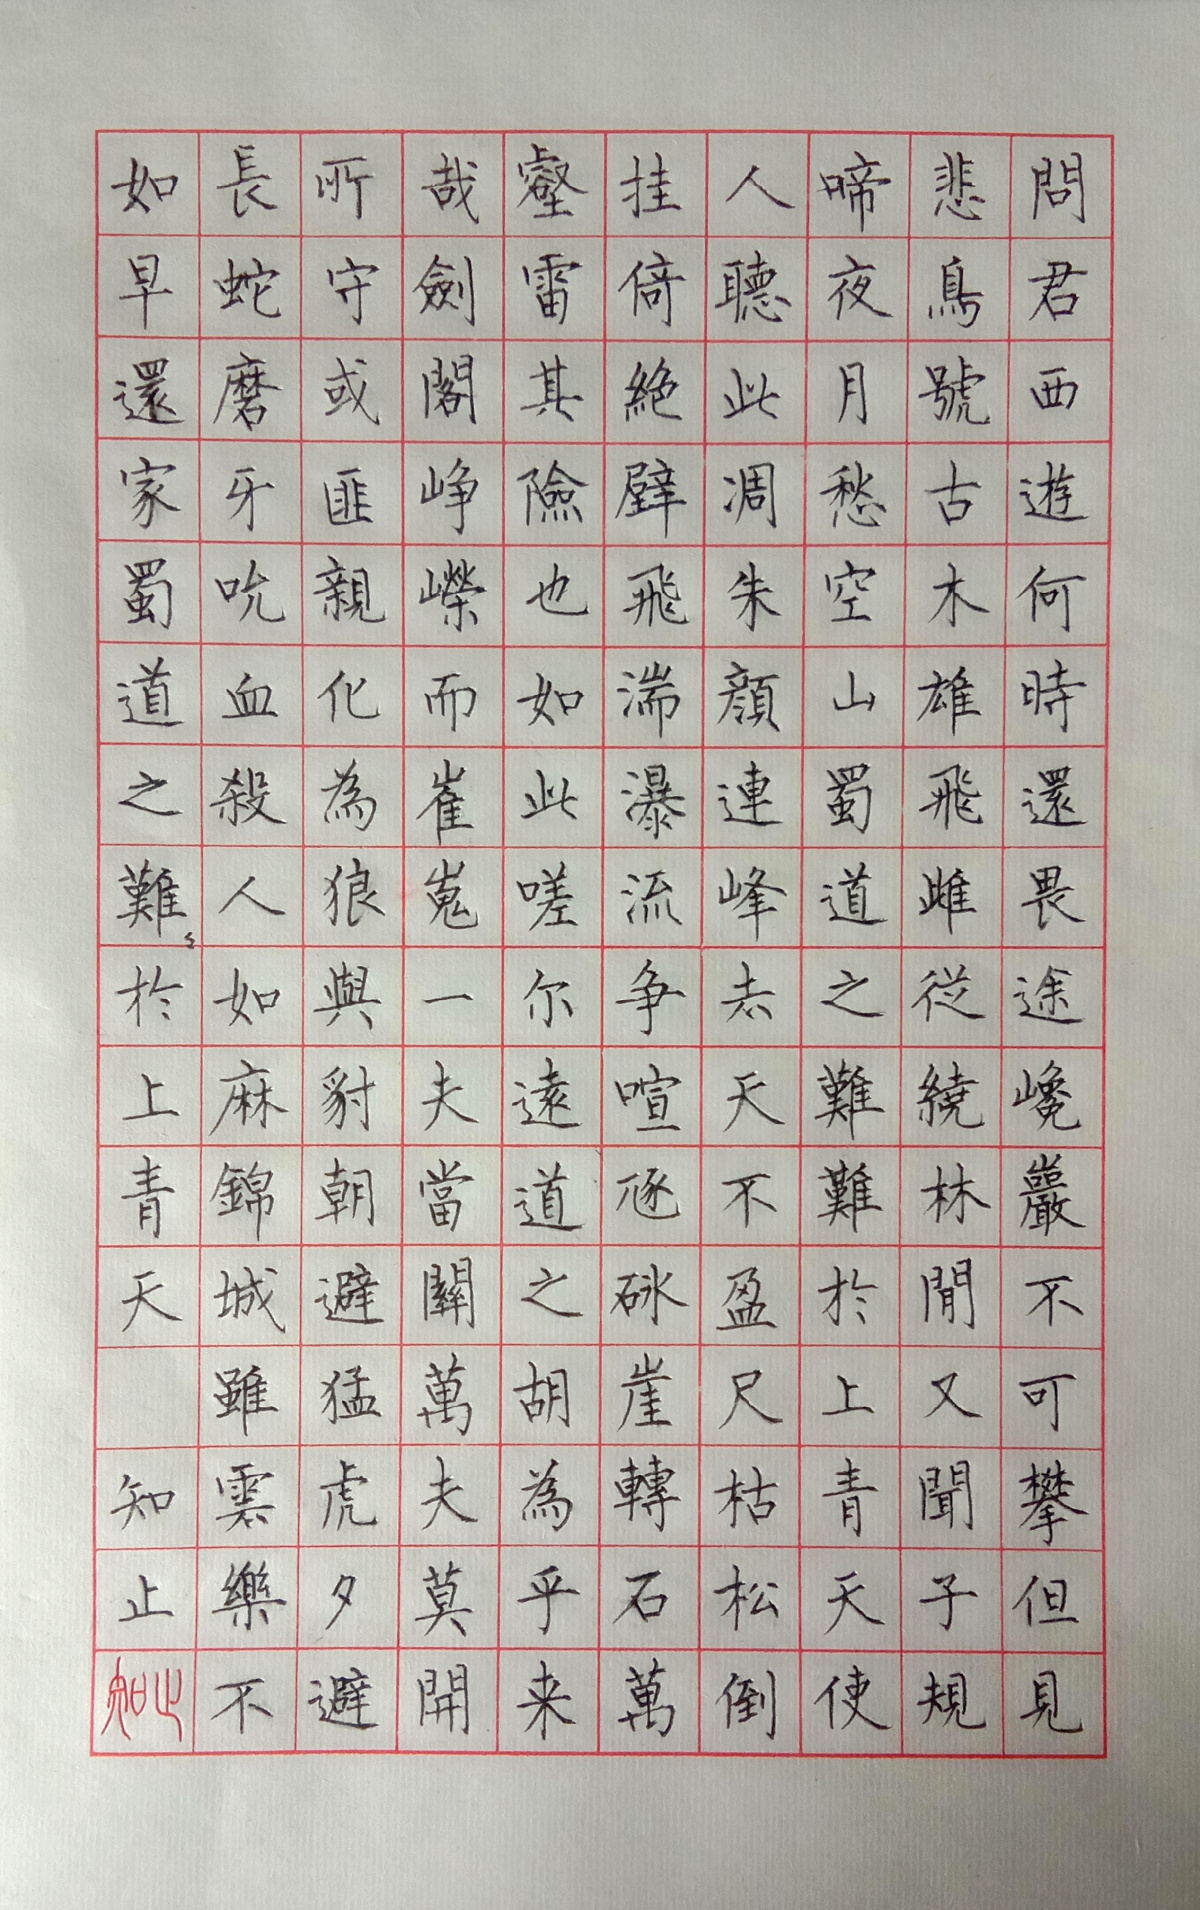 問君西遊何時還畏途巉巖不可攀但見
悲鳥號古木雄飛雌從繞林間又聞子規
啼夜月愁空山蜀道之難難於上青天使
人聽此凋朱顏連峰去天不盈尺枯松倒
挂倚絶壁飛湍瀑流争喧豗砯崖轉石萬
壑雷其險也如此嗟尔遠道之胡為乎来
哉劍閣峥嶸而崔嵬一夫當關萬夫莫開
所守或匪親化為狼與豺朝避猛虎夕避
長蛇磨牙吮血殺人如麻錦城雖雲樂不
如早還家蜀道之難〻於上青天 知止
知止